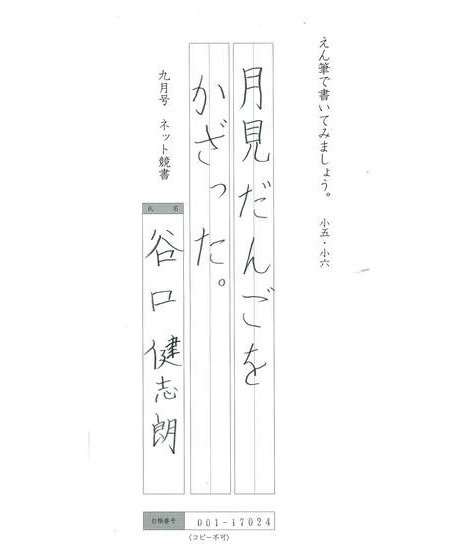 えん筆で書いてみましょう。 小五・小六
月見だんごを
かざった。
九月号 ネット競書
氏名
谷口 健志朗
台帳番号 001-17024
(コピー不可)